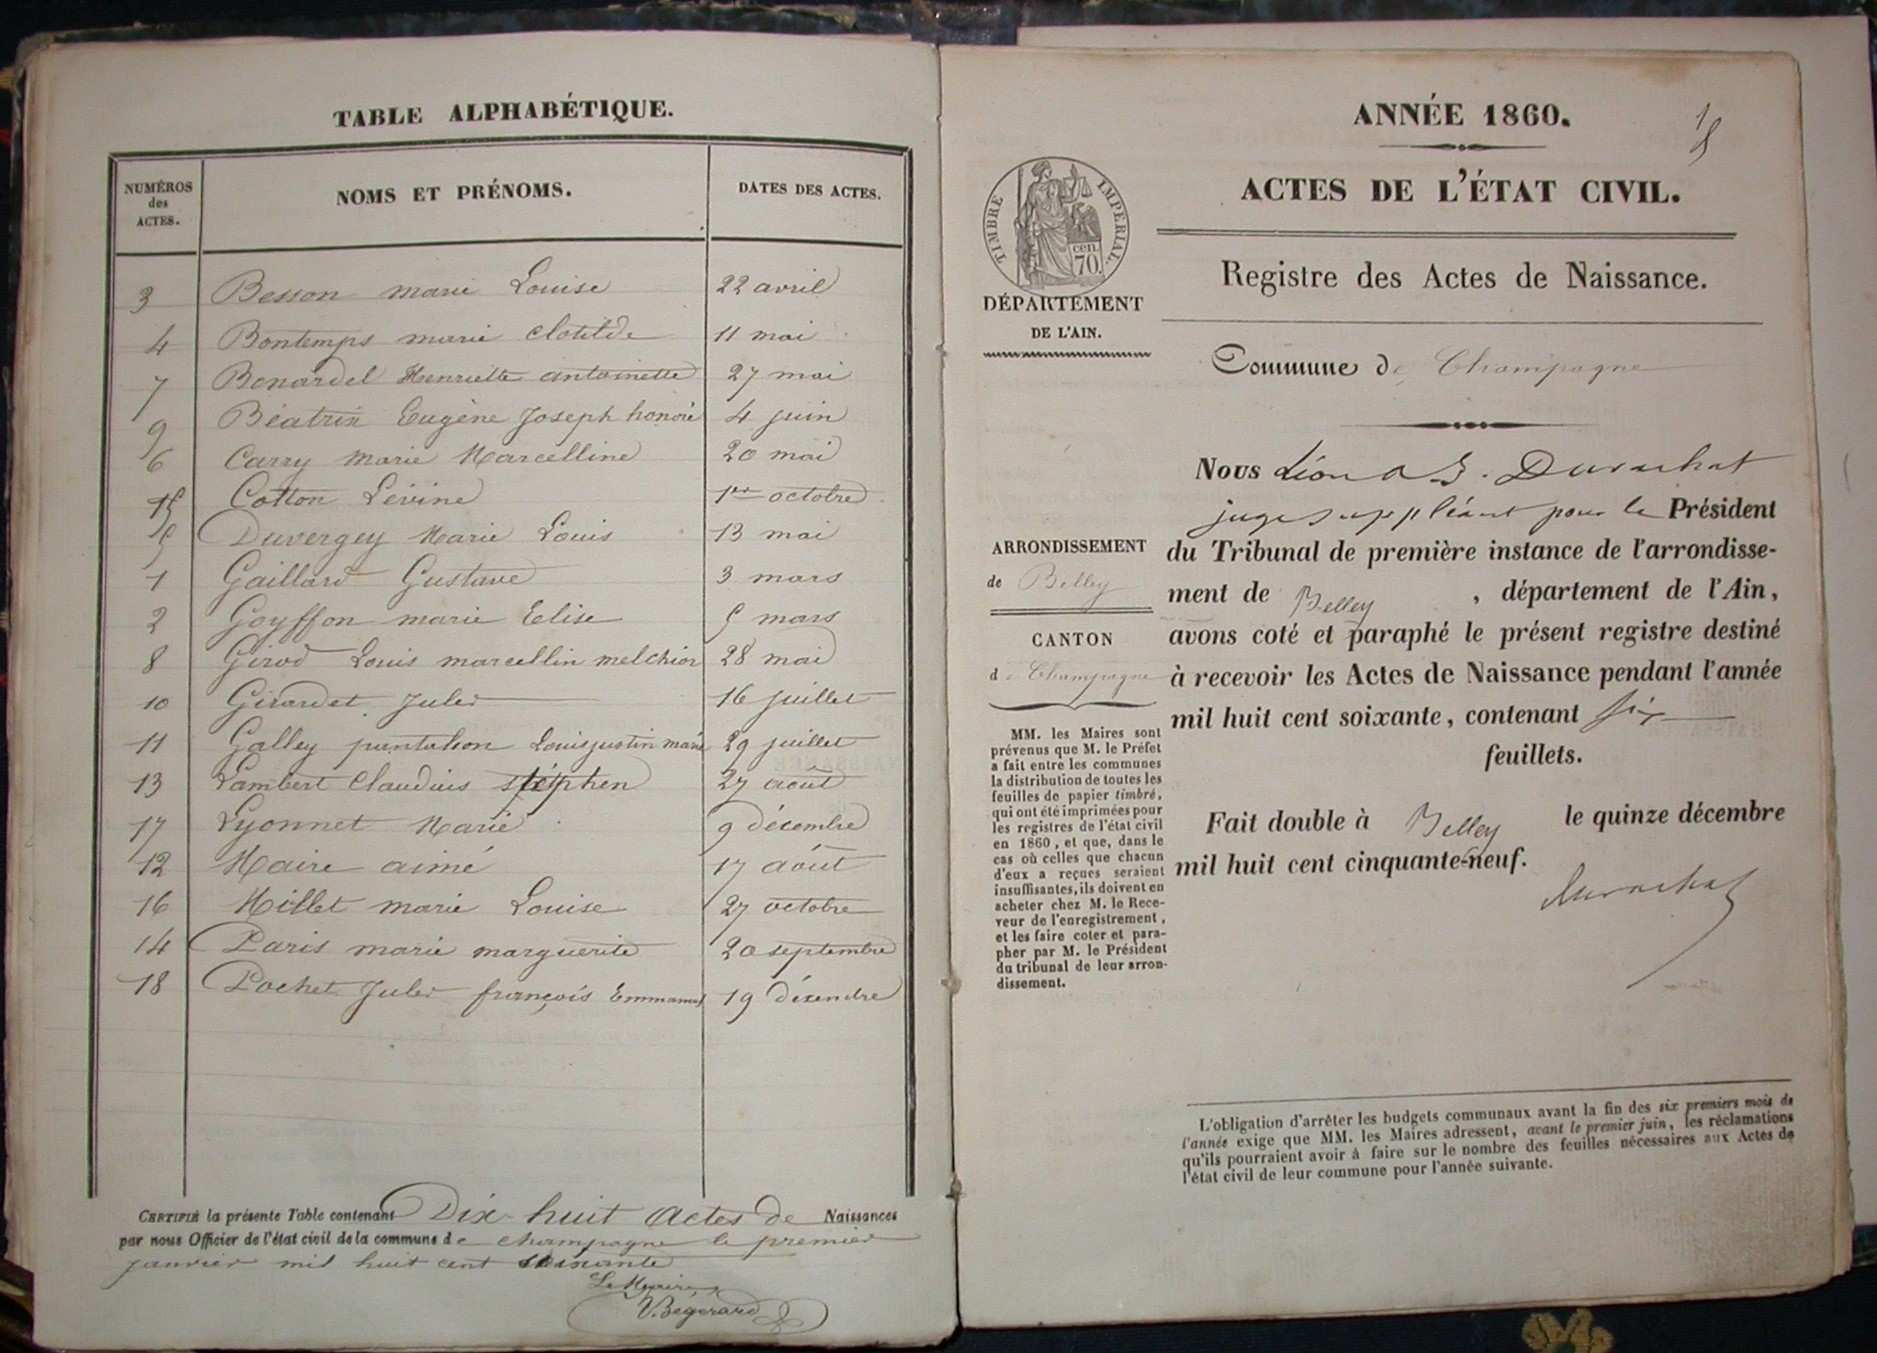 TABLE ALPHABÉTIQUE.
NUMÉROS des ACTES. NOMS ET PRÉNOMS. DATES DES ACTES.
3 Besson marie Louise 22 avril
4 Bontemps marie clotilde 11 mai
7 Bonardel Henriette antoinette 27 mai
9 Béatrix Eugène Joseph honoré 4 juin
6 Carry Marie Marcelline 20 mai
15 Cotton Lévine 1er octobre
5 Duvergey Marie Louis 13 mai
1 Gaillard Gustave 3 mars
2 Goyffon marie Elise 5 mars
8 Girod Louis marcellin melchior 28 mai
10 Girardet Jules 16 juillet
11 Galley pantaléon Louis justin marie 29 juillet
13 Lambert Claudius stéphen 27 août
17 Lyonnet Marie 9 décembre
12 Maire aimé 17 août
16 Millet marie Louise 27 octobre
14 Paris marie marguerite 20 septembre
18 Pochet Jules françois Emmanuel 19 décembre
CERTIFIÉ la présente Table contenant Dix-huit Actes de Naissances
par nous Officier de l'état civil de la commune de champagne le premier
janvier mil huit cent soixante
Le Maire,
V. Bégerard
ANNÉE 1860.
1
ACTES DE L'ÉTAT CIVIL.
TIMBRE IMPÉRIAL.
cen.
70.
Registre des Actes de Naissance.
DÉPARTEMENT
DE L'AIN.
Commune de Champagne
ARRONDISSEMENT
de Belley
CANTON
de Champagne
MM. les Maires sont
prévenus que M. le Préfet
a fait entre les communes
la distribution de toutes les
feuilles de papier timbré,
qui ont été imprimées pour
les registres de l'état civil
en 1860, et que, dans le
cas où celles que chacun
d'eux a reçues seraient
insuffisantes, ils doivent en
acheter chez M. le Rece-
veur de l'enregistrement,
et les faire coter et para-
pher par M. le Président
du tribunal de leur arron-
dissement.
Nous Léon Durachat
juge suppléant pour le Président
du Tribunal de première instance de l'arrondisse-
ment de Belley, département de l'Ain,
avons coté et paraphé le présent registre destiné
à recevoir les Actes de Naissance pendant l'année
mil huit cent soixante, contenant six
feuillets.
Fait double à Belley le quinze décembre
mil huit cent cinquante-neuf.
Durachat
L'obligation d'arrêter les budgets communaux avant la fin des six premiers mois de
l'année exige que MM. les Maires adressent, avant le premier juin, les réclamations
qu'ils pourraient avoir à faire sur le nombre des feuilles nécessaires aux Actes de
l'état civil de leur commune pour l'année suivante.